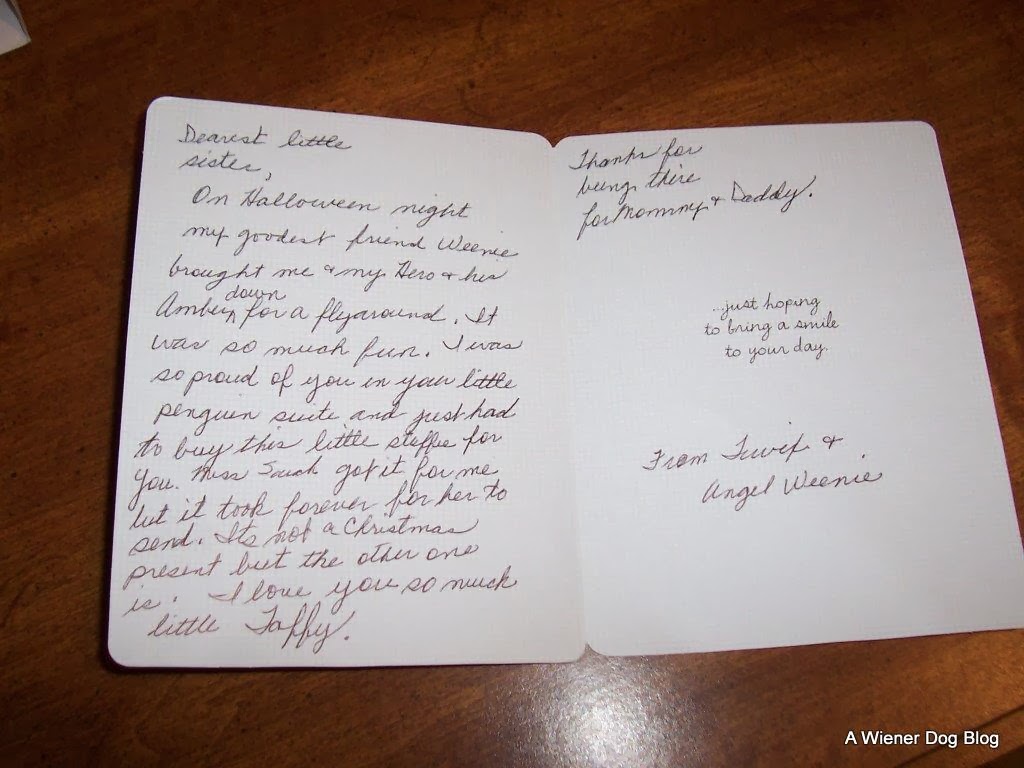 Dearest little
sister,
On Halloween night
my goodest friend Weenie
brought me & my Hero & his
down
Amber, for a flyaround. It
was so much fun. I was
so proud of you in your little
penguin suite and just had
to buy this little stuffie for
you. Miss got it for me
but it took forever for her to
send. Its not a Christmas
present but the other one
is. I love you so much
little Taffy.
Thanks for
being there
for Mommy & Daddy.
...just hoping
to bring a smile
to your day.
From &
Angel Weenie
A Wiener Dog Blog